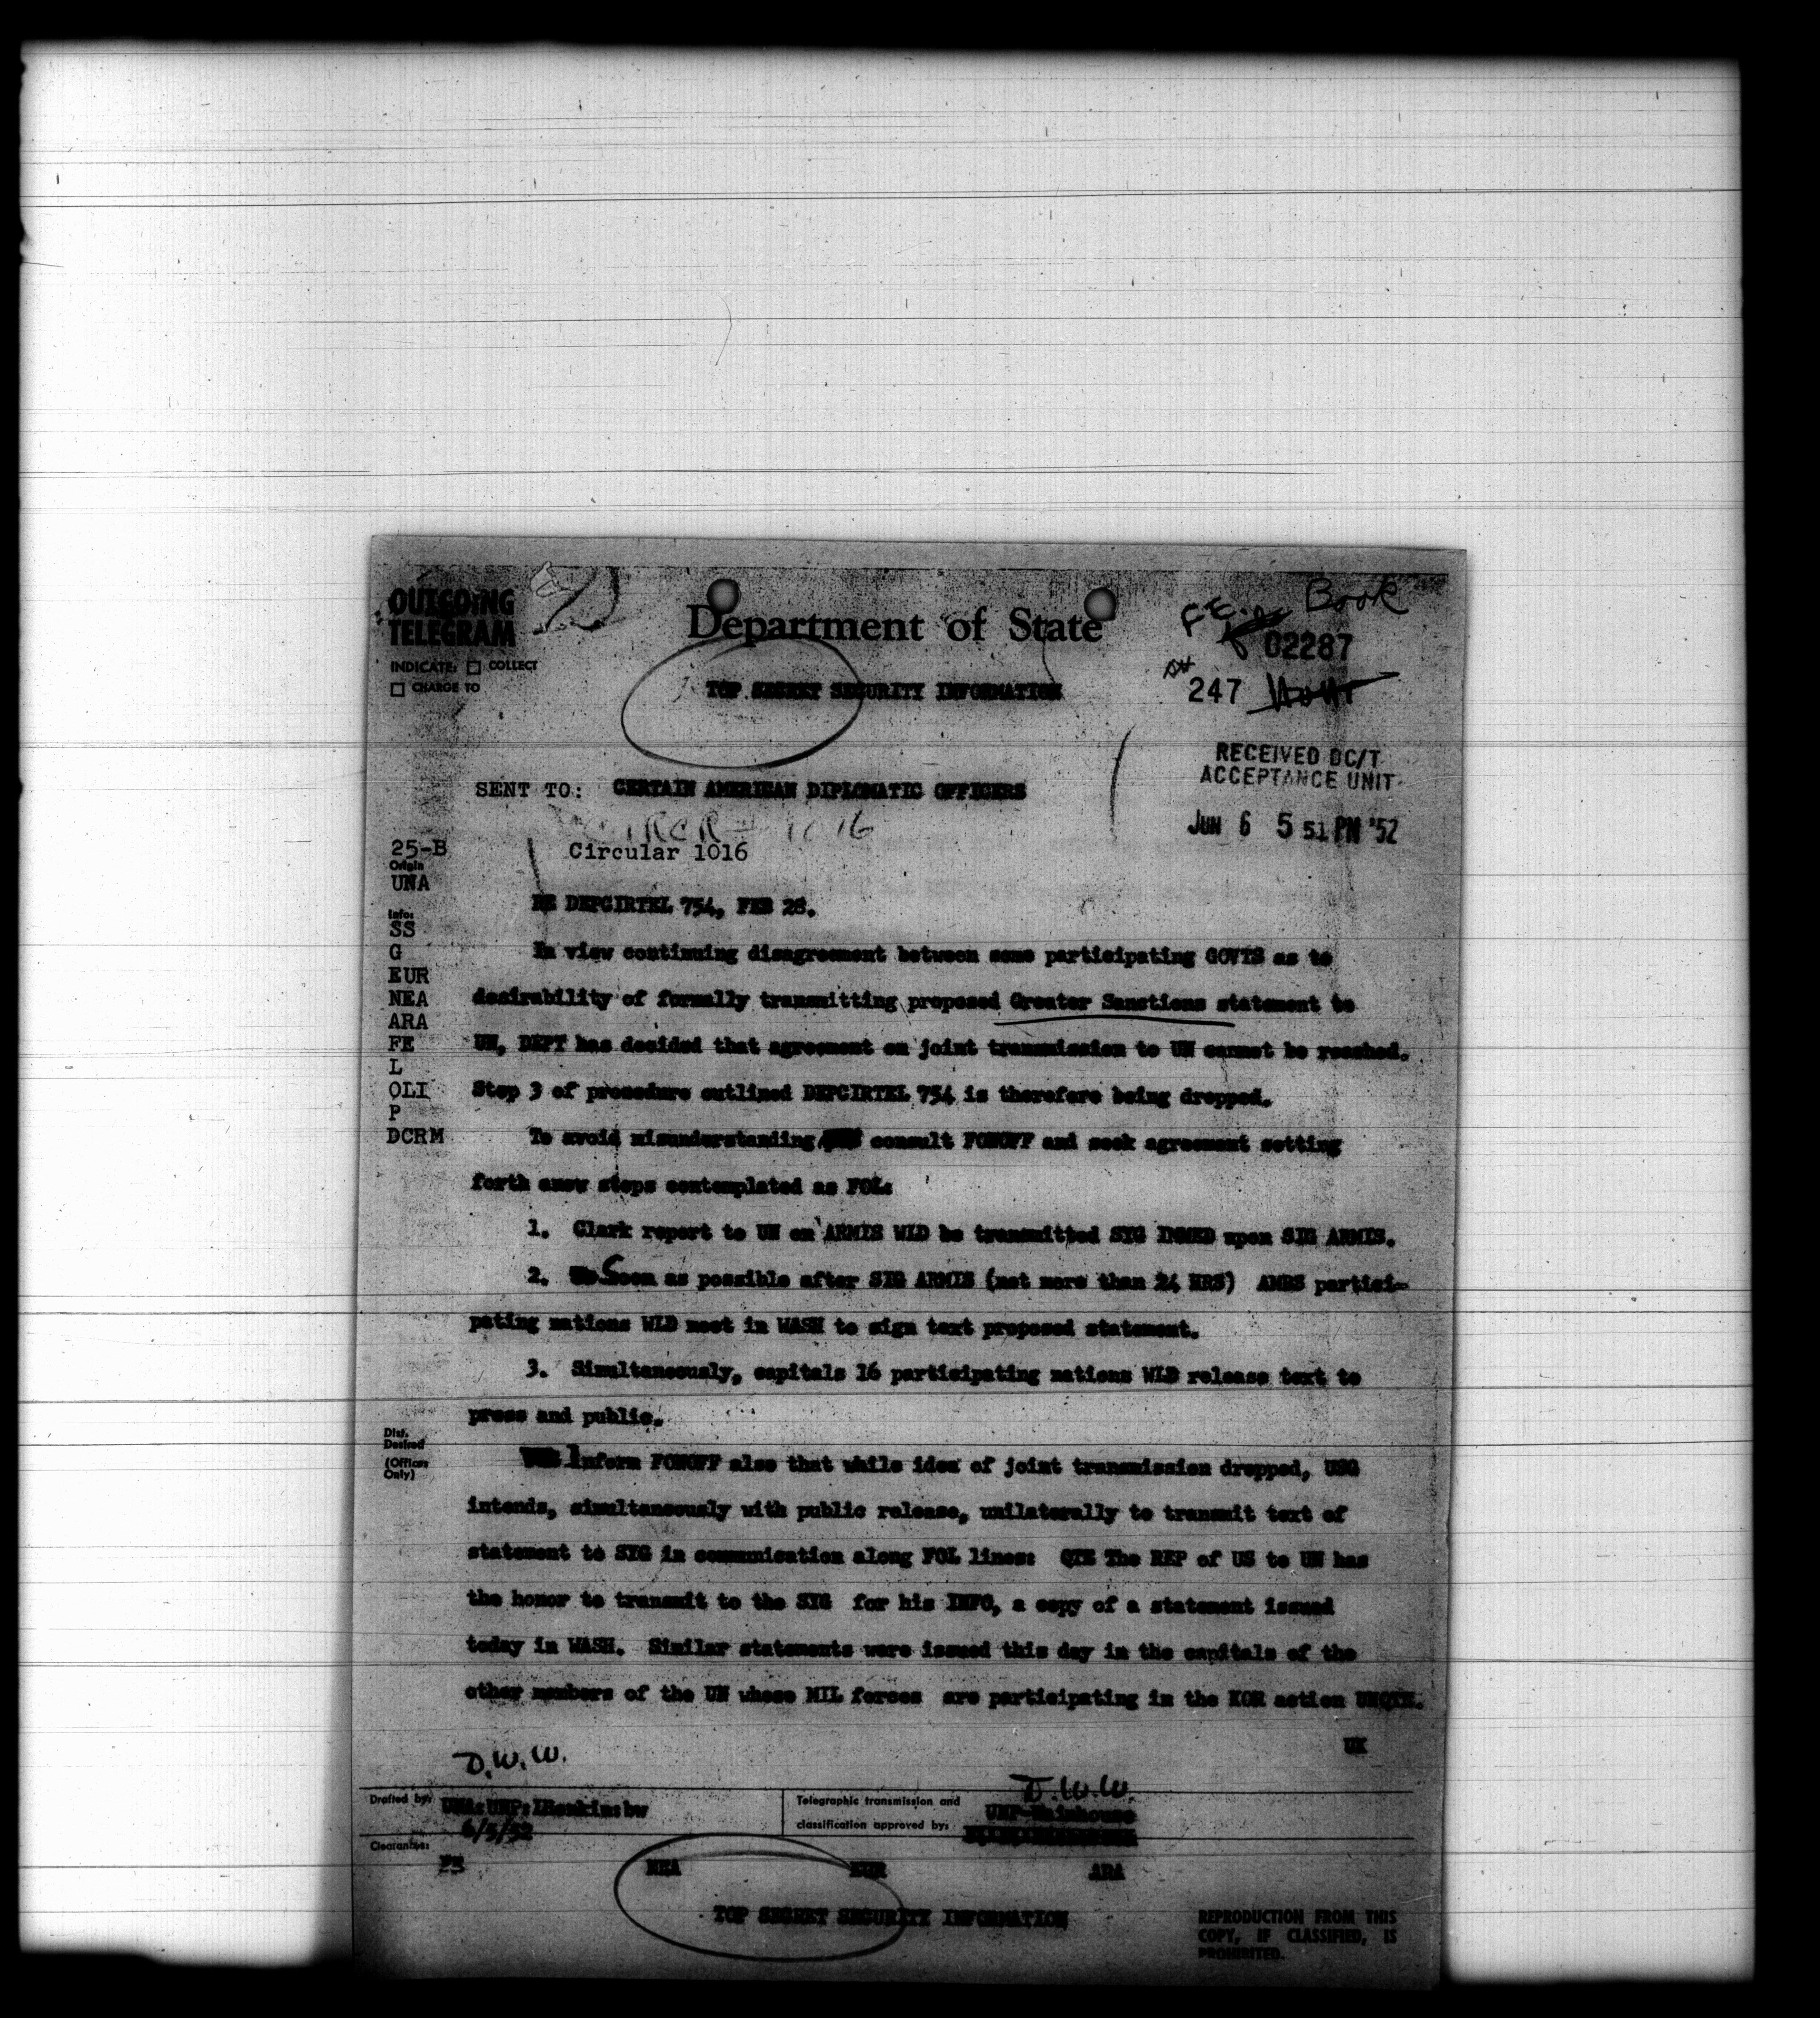 OUTGOING
TELEGRAM
INDICATE: □ COLLECT
□ CHARGE TO
Department of State
FE. Book
02287
247
TOP SECRET SECURITY INFORMATION
RECEIVED DC/T
ACCEPTANCE UNIT
JUN 6 5 51 PM '52
SENT TO: CERTAIN AMERICAN DIPLOMATIC OFFICERS
CIRCR # 1016
Circular 1016
25-B
Origin
UNA
Info:
SS
G
EUR
NEA
ARA
FE
L
OLI
P
DCRM
RE DEPCIRTEL 754, FEB 28.
In view continuing disagreement between some participating GOVTS as to
desirability of formally transmitting proposed Greater Sanctions statement to
UN, DEPT has decided that agreement on joint transmission to UN cannot be reached.
Step 3 of procedure outlined DEPCIRTEL 754 is therefore being dropped.
To avoid misunderstanding consult FONOFF and seek agreement setting
forth anew steps contemplated as FOL:
1. Clark report to UN on ARMIS WLD be transmitted SYG IMMED upon SIG ARMIS.
2. Soon as possible after SIG ARMIS (not more than 24 HRS) AMBS partici-
pating nations WLD meet in WASH to sign text proposed statement.
3. Simultaneously, capitals 16 participating nations WLD release text to
press and public.
Dist.
Desired
(Offices
Only)
Inform FONOFF also that while idea of joint transmission dropped, USG
intends, simultaneously with public release, unilaterally to transmit text of
statement to SYG in communication along FOL lines: QTE The REP of US to UN has
the honor to transmit to the SYG for his INFO, a copy of a statement issued
today in WASH. Similar statements were issued this day in the capitals of the
other members of the UN whose MIL forces are participating in the KOR action UNQTE.
UK
D.W.W.
D.W.W.
Drafted by: UNA:UNP:LHenkin:bw
6/5/52
Telegraphic transmission and
classification approved by: UNP-Wainhouse
Clearances:
FE NEA EUR ARA
TOP SECRET SECURITY INFORMATION
REPRODUCTION FROM THIS
COPY, IF CLASSIFIED, IS
PROHIBITED.